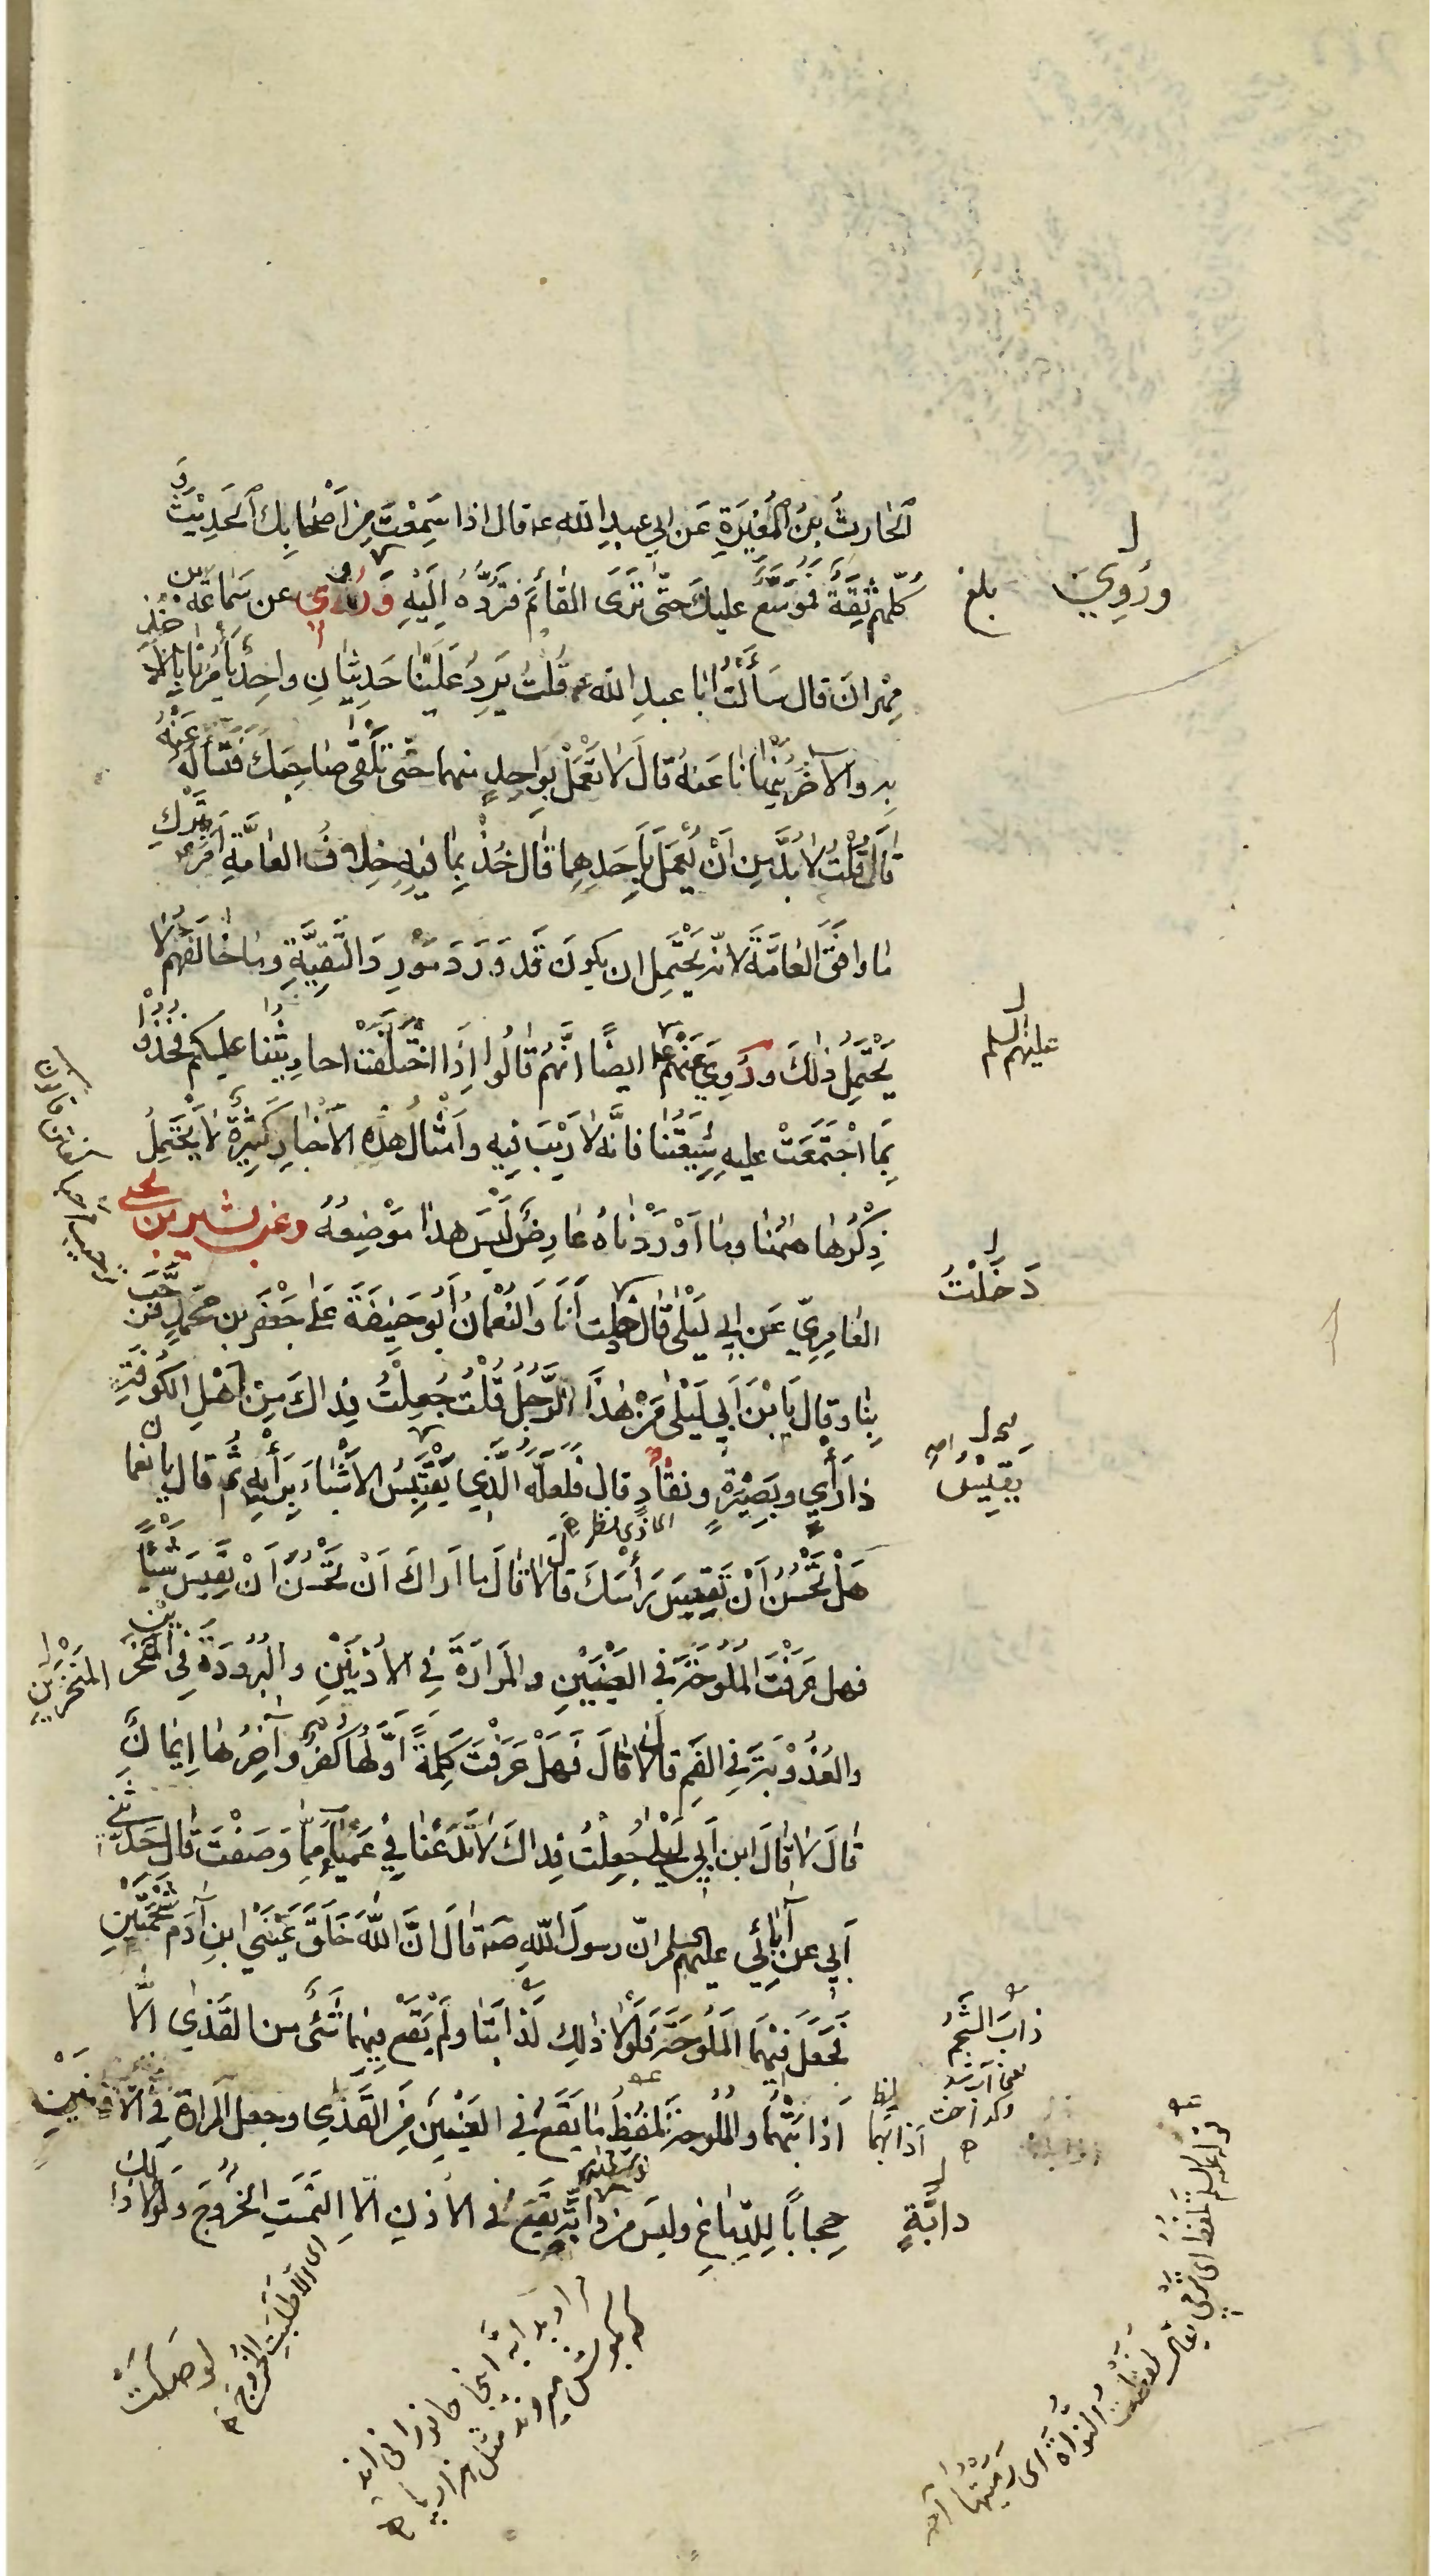 الحارِثُ بنُ المُغيرَةِ عَن ابي عبدِ الله عه قال اذا سَمِعْتَ مِن اَصْحابِكَ الحَدِيْثَ وَ
كلّهم ثِقَةٌ فَمُوَسَّعٌ عليكَ حتّى تَرَى القائمَ فتَرُدَّهُ اِلَيْهِ وَرُوِيَ عن سَماعَة بن
مِهْرانَ قال سَأَلْتُ ابا عبدِ الله عه قُلتُ يَرِدُ عَلَيْنا حَدِيْثانِ واحِدٌ يأمُرُنا بِالاَخْذِ
بِهِ والآخَرُ يَنْهانا عَنهُ قالَ لا تَعْمَلْ بِواحِدٍ منهما حتّى تَلْقىٰ صاحِبَكَ فتَسْأَلَهُ عَنْهُ
قالَ قُلْتُ لا بُدَّ مِن اَنْ يُعْمَلَ بِاَحَدِهِما قالَ خُذْ بِما فيهِ خِلافُ العامَّةِ اَمَرَ عه بِتَرْكِ
ما وافَقَ العامَّةَ لانّه يَحْتَمِل ان يكونَ قَد وَرَدَ مَوْرِدَ التَّقِيَّةِ وما خالَفَهُم لا
يَحْتَمِلُ ذٰلكَ ورُوِيَ عَنْهُم عه ايضًا انَّهُم قالُوا اِذَا اخْتَلَفَتْ احاديثُنا عليكم فَخُذُوا
بِمَا اجْتَمَعَتْ عليهِ شِيعَتُنا فانَّه لا رَيْبَ فيه واَمْثالُ هذه الاَخْبارِ كَثِيرَةٌ لا يَحْتَمِلُ
ذِكْرُها هٰهُنا وما اَوْرَدْناهُ عارِضٌ لَيْسَ هذا مَوْضِعُهُ وعَن بشير بن يحيى
العامِرِيّ عَن ابن ابي لَيْلىٰ قالَ دخلت اَنَا وَالنُّعْمانُ اَبُو حَنِيفَةَ عَلىٰ جَعْفَرِ بنِ محمّدٍ فَرَحَّبَ
بِنا وقالَ يَا بْنَ اَبي لَيْلىٰ مَنْ هٰذَا الرَّجُلُ قُلْتُ جُعِلْتُ فِداكَ مِنْ اَهْلِ الكُوفَةِ
ذا رَأْيٍ وبَصِيْرَةٍ ونَفاذٍ قال فَلَعَلَّهُ الَّذِي يَقْتَبِسُ الاَشْياءَ بِرَأْيِهِ ثُمَّ قال يا نعمان
هَلْ تُحْسِنُ اَنْ تَقِيسَ رَأْسَكَ قالَ لا قالَ ما اَراكَ اَنْ تُحْسِنَ اَنْ تَقِيسَ شَيْئًا
فهل عَرَفْتَ المُلُوحَةَ فِي العَيْنَيْنِ والمَرارَةَ فِي الاُذْنَيْنِ والبُرُودَةَ فِي المَنْخَرَيْنِ
والعُذُوْبَةَ فِي الفَمِ قالَ لا قالَ فَهَلْ عَرَفْتَ كَلِمَةً اَوَّلُها كُفْرٌ وآخِرُها اِيمانٌ
قالَ لا قالَ ابن اَبي لَيْلىٰ جُعِلْتُ فِداكَ لا تَدَعْنا فِي عَمْياءَ مِمّا وَصَفْتَ قالَ حَدَّثَنِي
اَبي عن آبائي عليهم السلم انّ رسولَ اللهِ صه قالَ انَّ اللهَ خَلَقَ عَيْنَيِ ابنِ آدَمَ شَحْمَتَيْنِ
فَجَعَلَ فِيْهِمَا المُلُوحَةَ فَلَوْلا ذٰلِكَ لَذابَتا ولَمْ يَقَعْ فِيهِما شَيْءٌ من القَذىٰ الّا
اَذابَتْهُما والمُلُوحَةُ تَلْفِظُ ما يَقَعُ فِي العَيْنَيْنِ مِنَ القَذىٰ وجعل المَرارَةَ فِي الاُذُنَيْنِ
حِجابًا لِلدِّماغِ وليسَ مِن دابَّةٍ تَقَعُ في الاُذُنِ الّا التَمَسَتِ الخُرُوجَ ولَوْلا ذٰلِكَ
ورُوِيَ
بلغ
عليهم السلم
دَخَلْتُ
يَقِيْسُ
المَنْخَرَيْنِ
ذابَ الشَّحْمُ
اَذابَهُما
دابَّةٍ
اى الّا طَلَبَتِ الخُرُوجَ
لَوَصَلَتْ
قوله عليه السلم تَلْفِظُ اى تَرْمِي يقال لَفَظْتُ النَّواةَ اى رَمَيْتُها